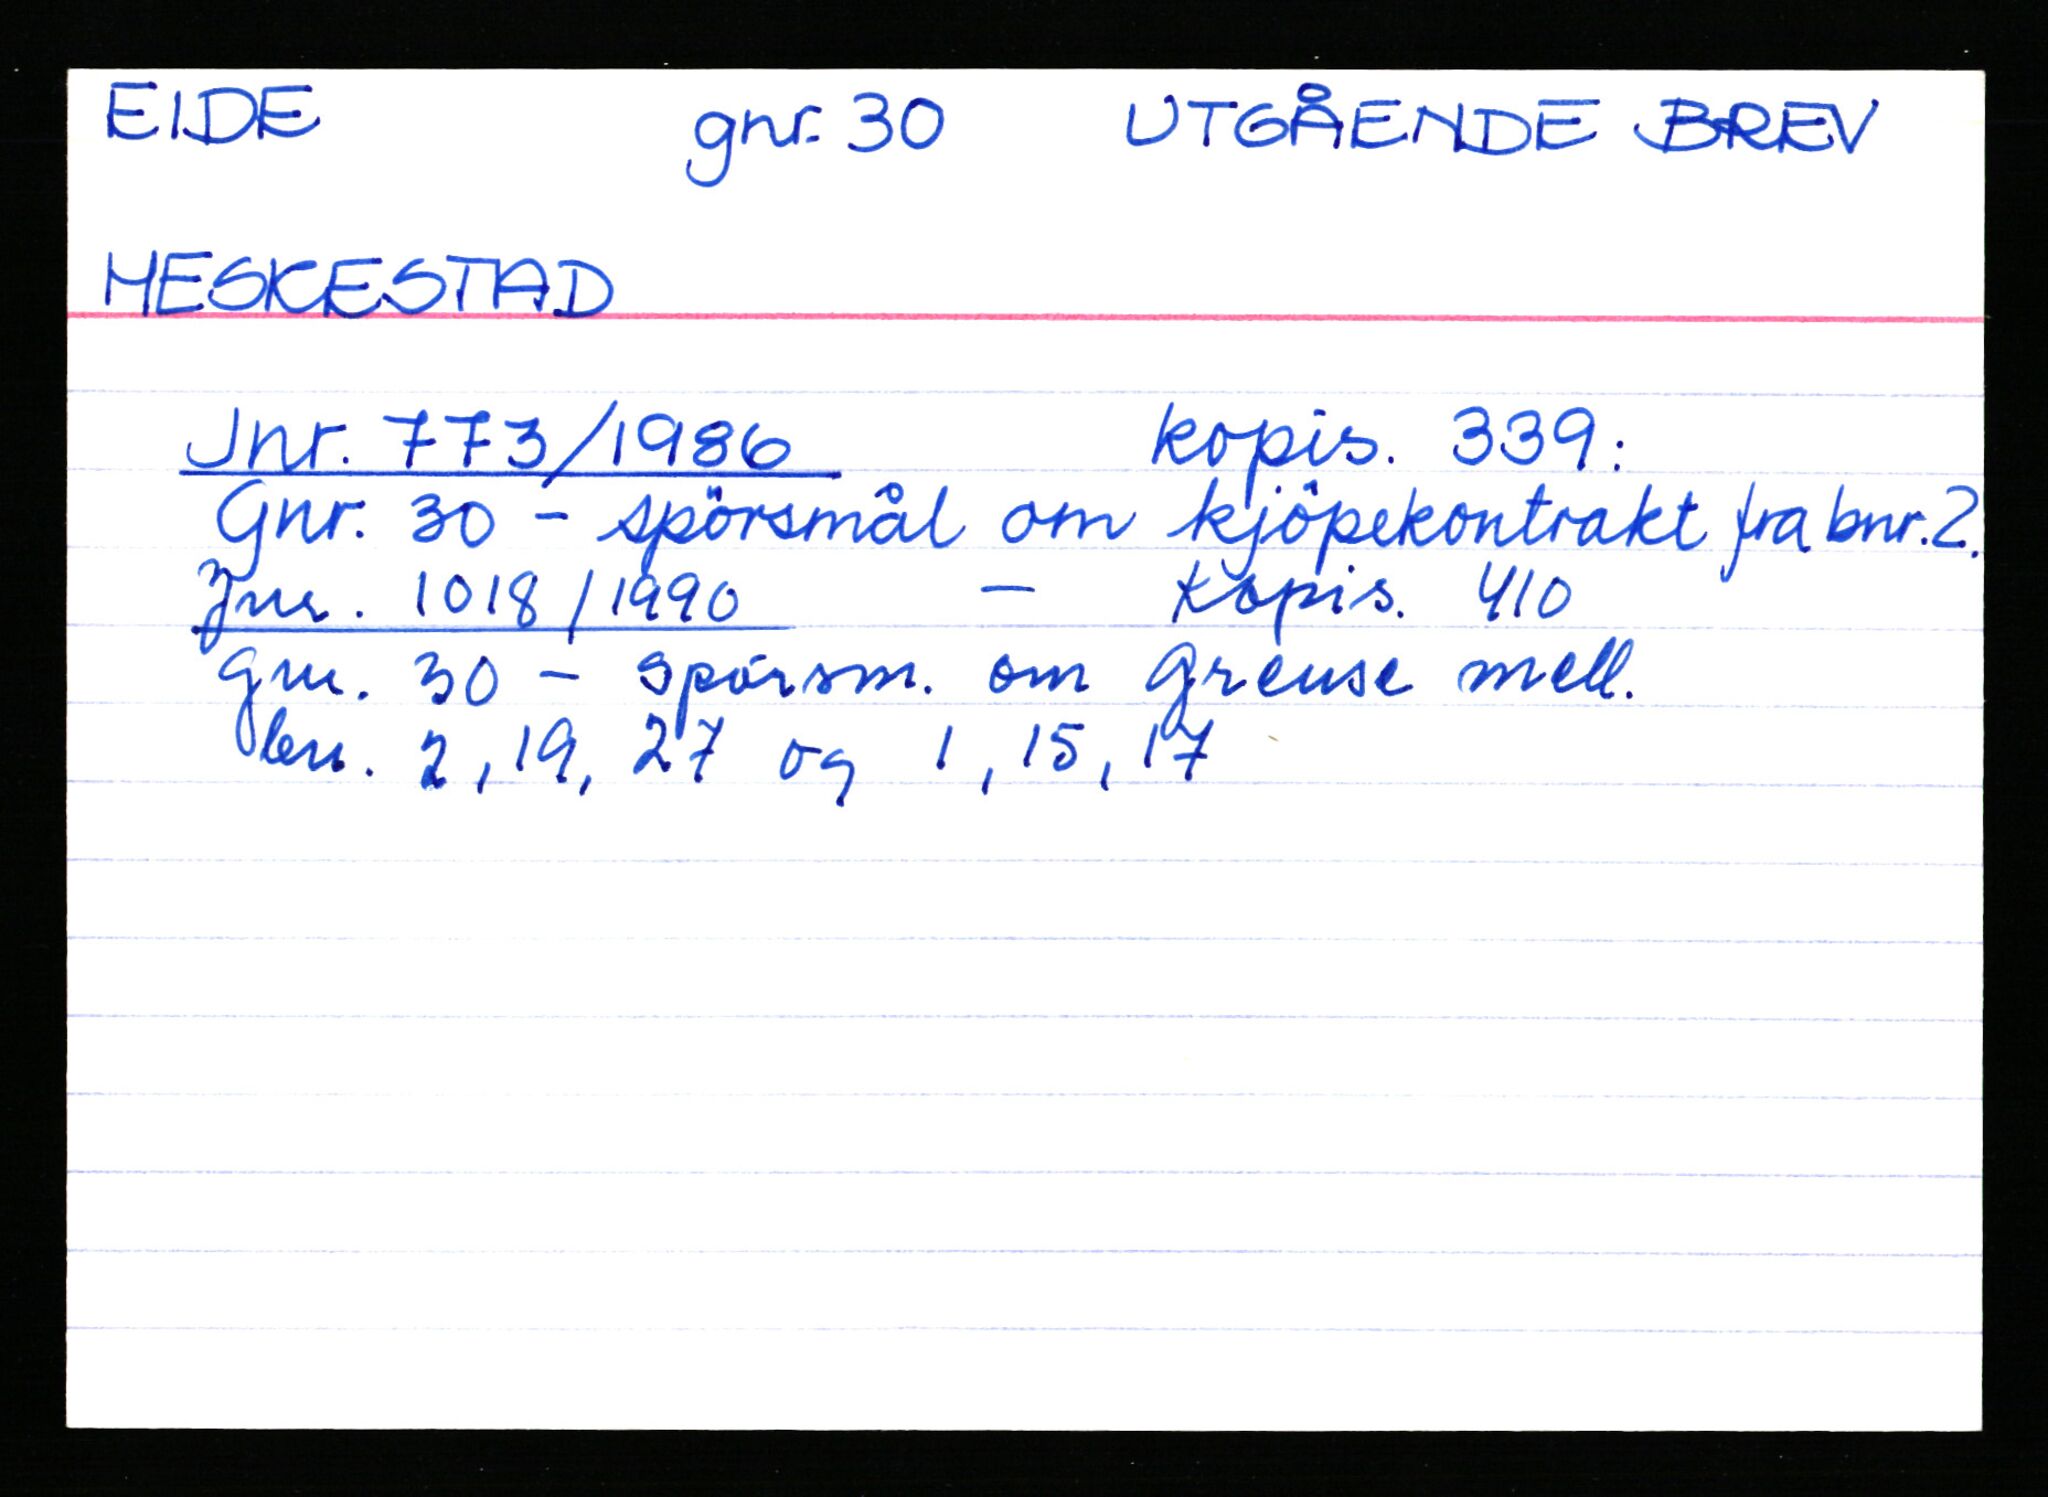 EIDE gnr. 30 UTGÅENDE BREV
HESKESTAD
Jnr. 773/1986 kopis. 339:
Gnr. 30 - spörsmål om kjöpekontrakt fra bnr. 2.
Jnr. 1018/1990 - Kopis. 410
gnr. 30 - spørsm. om Grense mell.
bn. 2, 19, 27 og 1, 15, 17